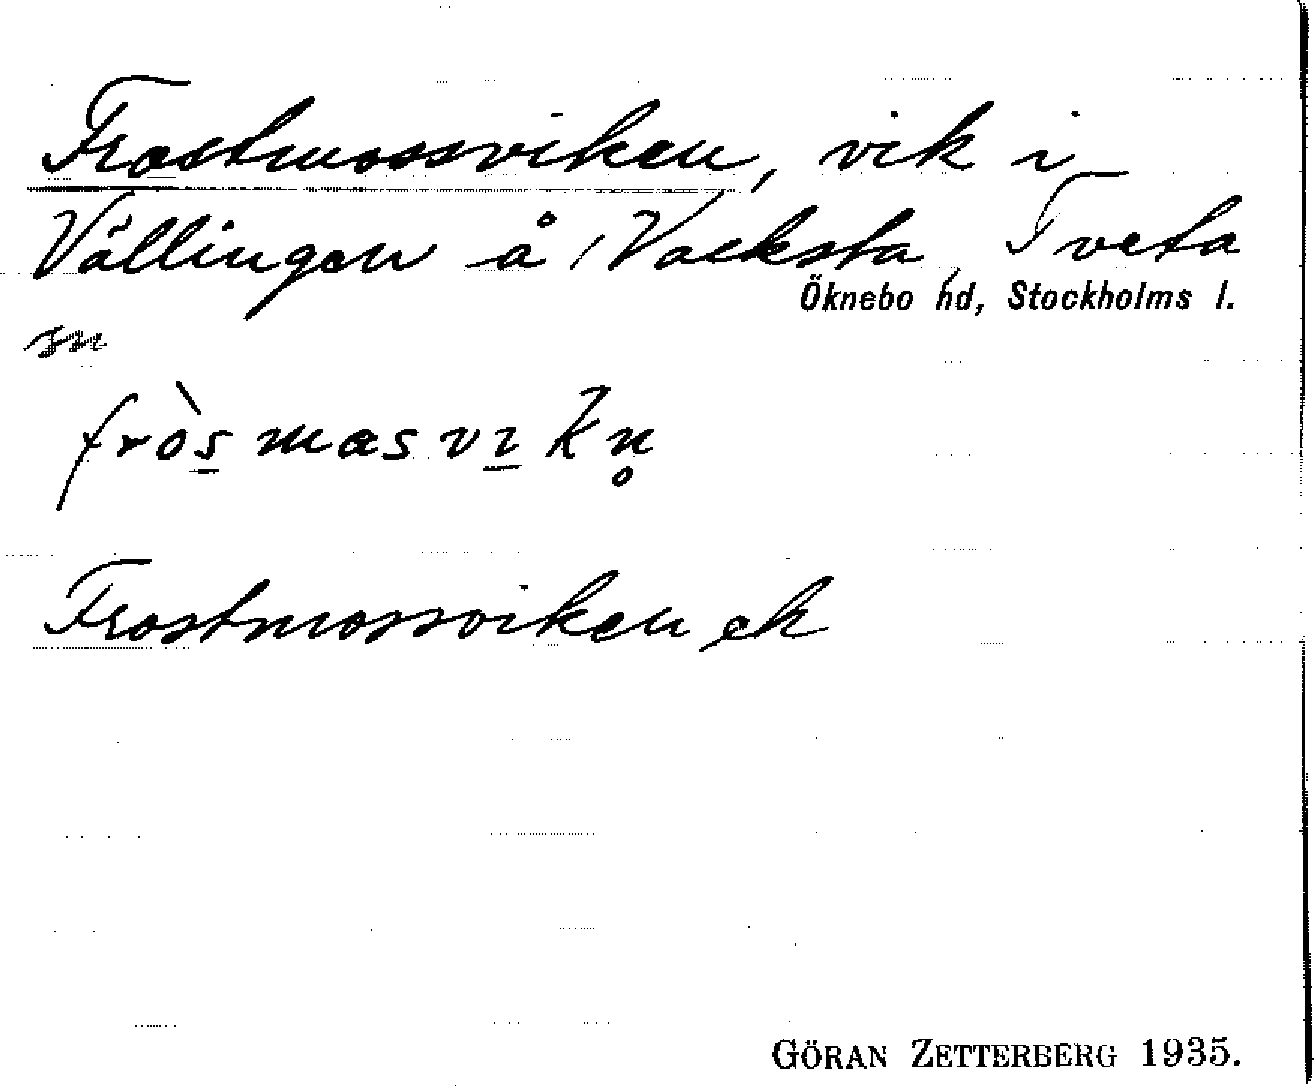 Frostmossviken, vik i
Vällingen å Vacksta, Tveta
Öknebo hd, Stockholms l.
sn
fròs mas vi kn̥
Frostmossviken ek
GÖRAN ZETTERBERG 1935.